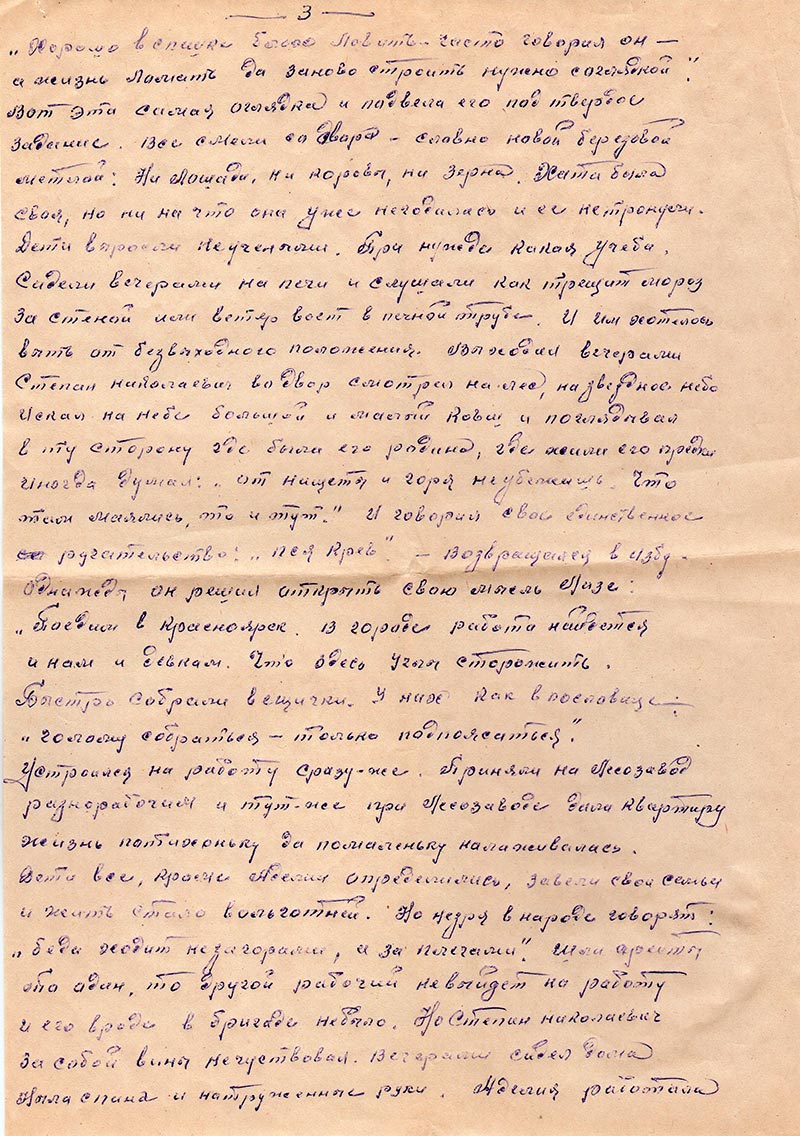 — 3 —
„Хорошо в спину было ловить – часто говорил он —
а жизнь ломать да заново строить нужно с оглядкой".
Вот эта самая оглядка и подвела его под твердое
задание. Все смели со двора – словно новой березовой
метлой: Ни лошади, ни коровы, ни зерна. Хата была
своя, но ни на что она уже негодилась и ее нетронули.
Дети выросли неучеными. При нужде какая учеба.
Сидели вечерами на печи и слушали как трещит мороз
за стеной или ветер воет в печной трубе. И им хотелось
выть от безвыходного положения. Выходил вечерами
Степан николаевич во двор смотрел на лес, на звездное небо
искал на небе большой и малый Ковш и поглядывал
в ту сторону где была его родина, где жили его предки
иногда думал: „от нищеты и горя неубежишь. Что
там маялись, то и тут." И говорил свое единственное
ругательство: „пся крев" – возвращался в избу.
Однажды он решил открыть свою мысль Юзе:
„Поедим в Красноярск. В городе работа найдется
и нам и девкам. Что здесь углы сторожить.
Быстро собрали вещички. У них как в пословице:
„голому собраться – только подпоясаться".
Устроился на работу сразу-же. Приняли на Лесозавод
разнорабочим и тут-же при Лесозаводе дали квартиру
жизнь потихоньку да помаленьку налаживалась.
Дети все, кроме Аделии определились, завели свои семьи
и жить стало вольготней. Но незря в народе говорят:
„беда ходит незагорами, а за плечами". Шли аресты
то один, то другой рабочий невыйдет на работу
и его вроде в бригаде небыло. Но Степан николаевич
за собой вины нечуствовал. Вечерами сидел дома
Ныла спина и натруженные руки. Аделия работала